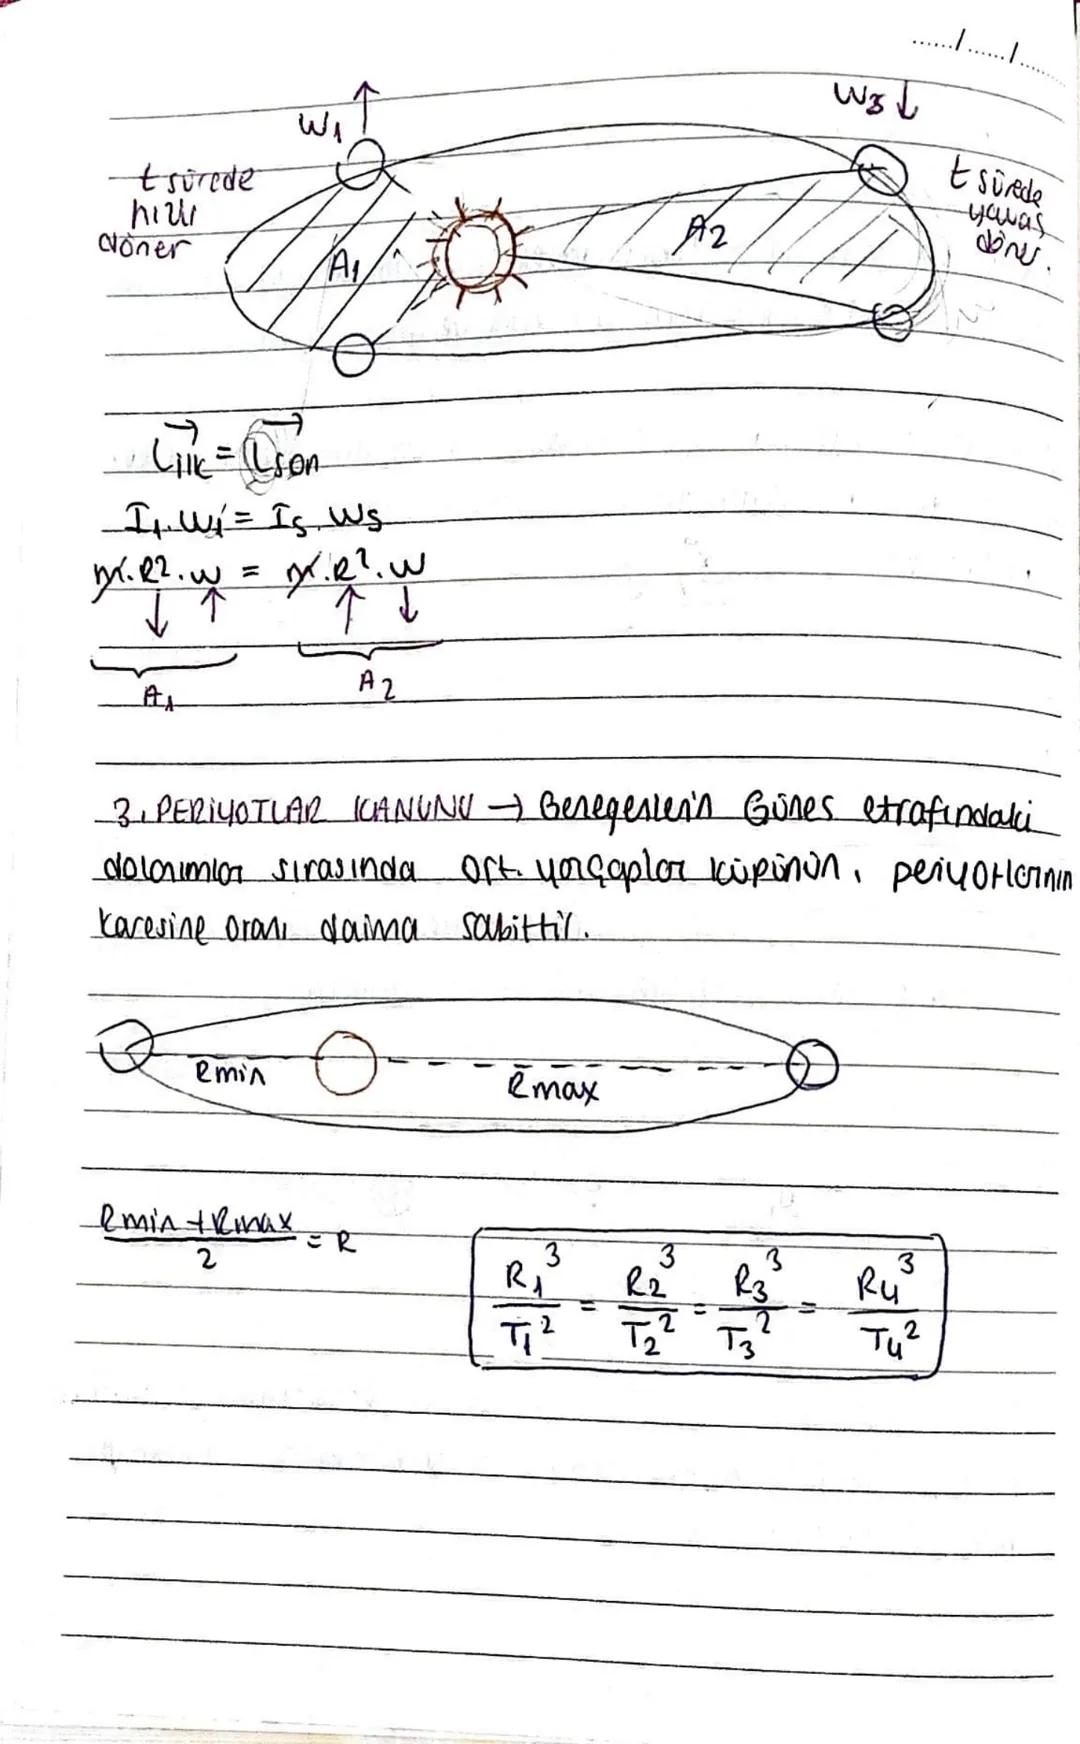 ....../....../......
W₁ ↑
W₃ ↓
t sürede
hızlı
döner
A₁
A₂
t sürede
yavaş
döner.
L⃗ilk = L⃗son
I₁.W₁ = Is.Ws
m.R².w = m.R².w
↓ ↑ ↑ ↓
A₁ A₂
3. PERİYOTLAR KANUNU → Gezegenlerin Güneş etrafındaki
dolanımlar sırasında ort. yarıçaplar küpünün, periyotlarının
karesine oranı daima sabittir.
Rmin
Rmax
Rmin + Rmax / 2 = R
R₁³/T₁² = R₂³/T₂² = R₃³/T₃² = R₄³/T₄²